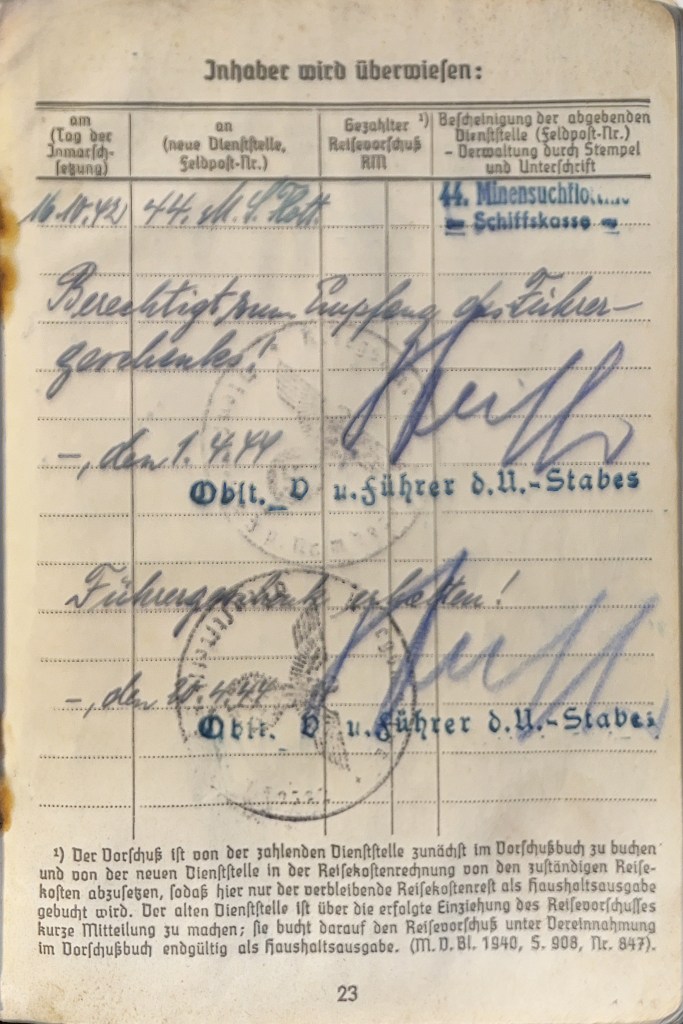 Inhaber wird überwiesen:
am
(Tag der
Inmarsch-
setzung)
an
(neue Dienststelle,
Feldpost-Nr.)
Gezahlter ¹)
Reisevorschuß
RM
Bescheinigung der abgebenden
Dienststelle (Feldpost-Nr.)
- Verwaltung durch Stempel
und Unterschrift
16.10.42 44. M. S. Flott. 44. Minensuchflottille
Schiffskasse
Berechtigt zum Empfang des Führer-
geschenks!
–, den 1.4.44
Obst. V u. Führer d. U.-Stabes
Führergeschenk erhalten!
–, den 20.4.44
Obst. V u. Führer d. U.-Stabes
¹) Der Vorschuß ist von der zahlenden Dienststelle zunächst im Vorschußbuch zu buchen
und von der neuen Dienststelle in der Reisekostenrechnung von den zuständigen Reise-
kosten abzusetzen, sodaß hier nur der verbleibende Reisekostenrest als Haushaltsausgabe
gebucht wird. Der alten Dienststelle ist über die erfolgte Einziehung des Reisevorschusses
kurze Mitteilung zu machen; sie bucht darauf den Reisevorschuß unter Vereinnahmung
im Vorschußbuch endgültig als Haushaltsausgabe. (M. V. Bl. 1940, S. 908, Nr. 847).
23